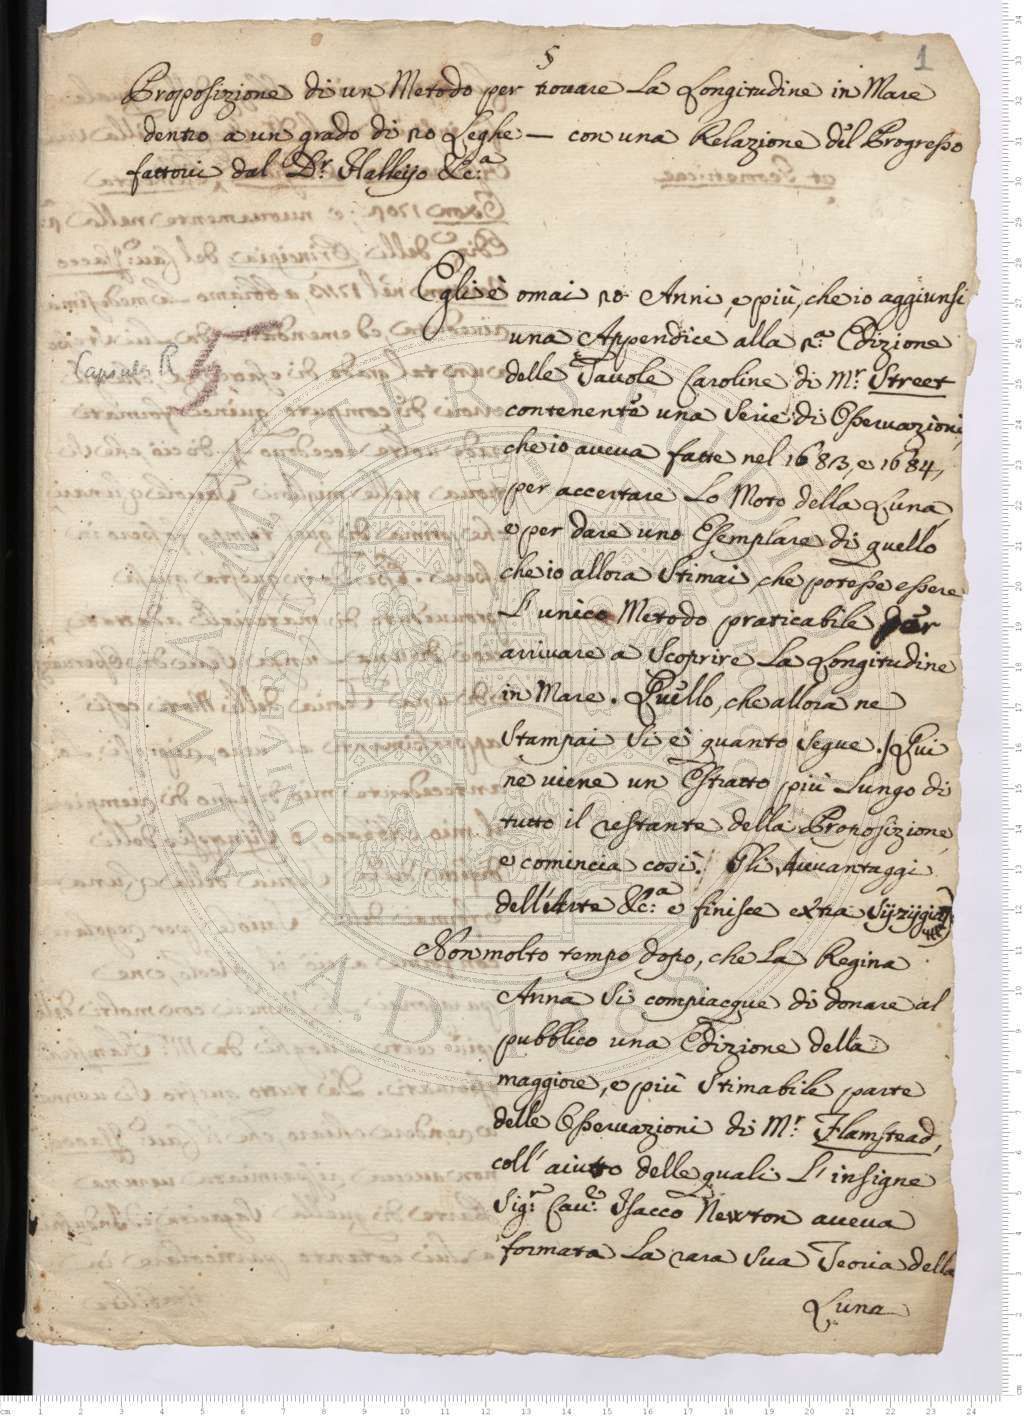 5
1
Proposizione di un Metodo per trovare La Longitudine in Mare
dentro a un grado di 20 Leghe — con una Relazione del Progresso
fattovi dal D.r Halleyo &c.a
Capsula R 5
Egli è omai 20 Anni, e più, che io aggiunsi
una Appendice alla 2.a Edizione
delle Tavole Caroline di M.r Street
contenente una Serie di Osservazioni,
che io aveva fatte nel 1683, e 1684,
per accertare Lo Moto della Luna,
e per dare uno Esemplare di quello
che io allora Stimai, che potesse essere
L'unico Metodo praticabile per
arrivare a Scoprire La Longitudine
in Mare. Quello, che allora ne
Stampai Si è quanto Segue./Qui
ne viene un Estratto più Lungo di
tutto il restante della Proposizione,
e comincia così. Gli Avvantaggi
dell'Arte &c.a e finisce extra Syzygias
Non molto tempo dopo, che La Regina
Anna Si compiacque di donare al
pubblico una Edizione della
maggiore, e più Stimabile parte
delle Osservazioni di M.r Flamstead,
coll'aiuto delle quali L'insigne
Sig.r Cav.e Isacco Newton aveva
formata La rara Sua Teoria della
Luna